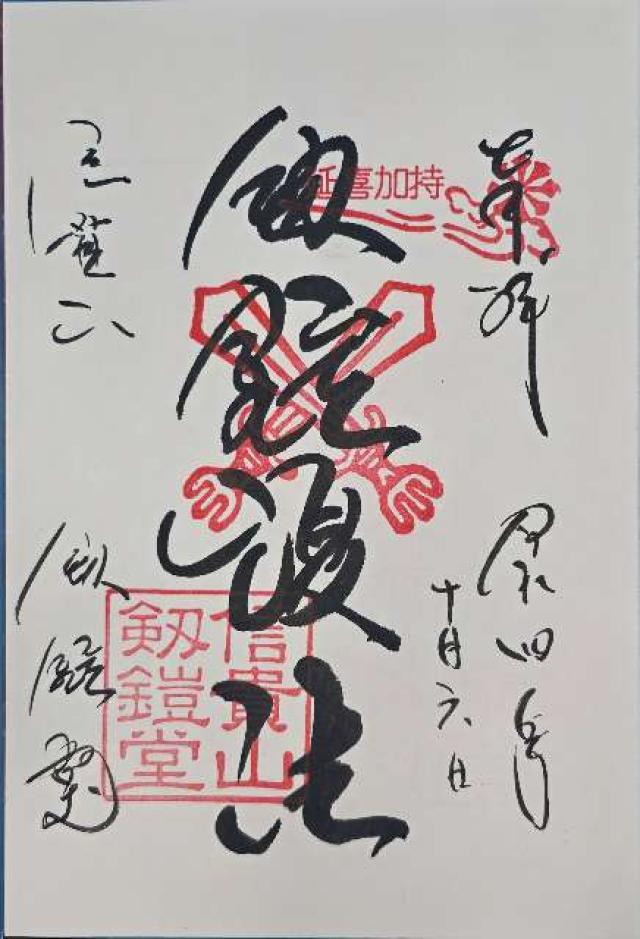 奉拝
令和四年
十月六日
延喜加持
剱鎧護法
信貴山
剱鎧堂
信貴山
剱鎧堂